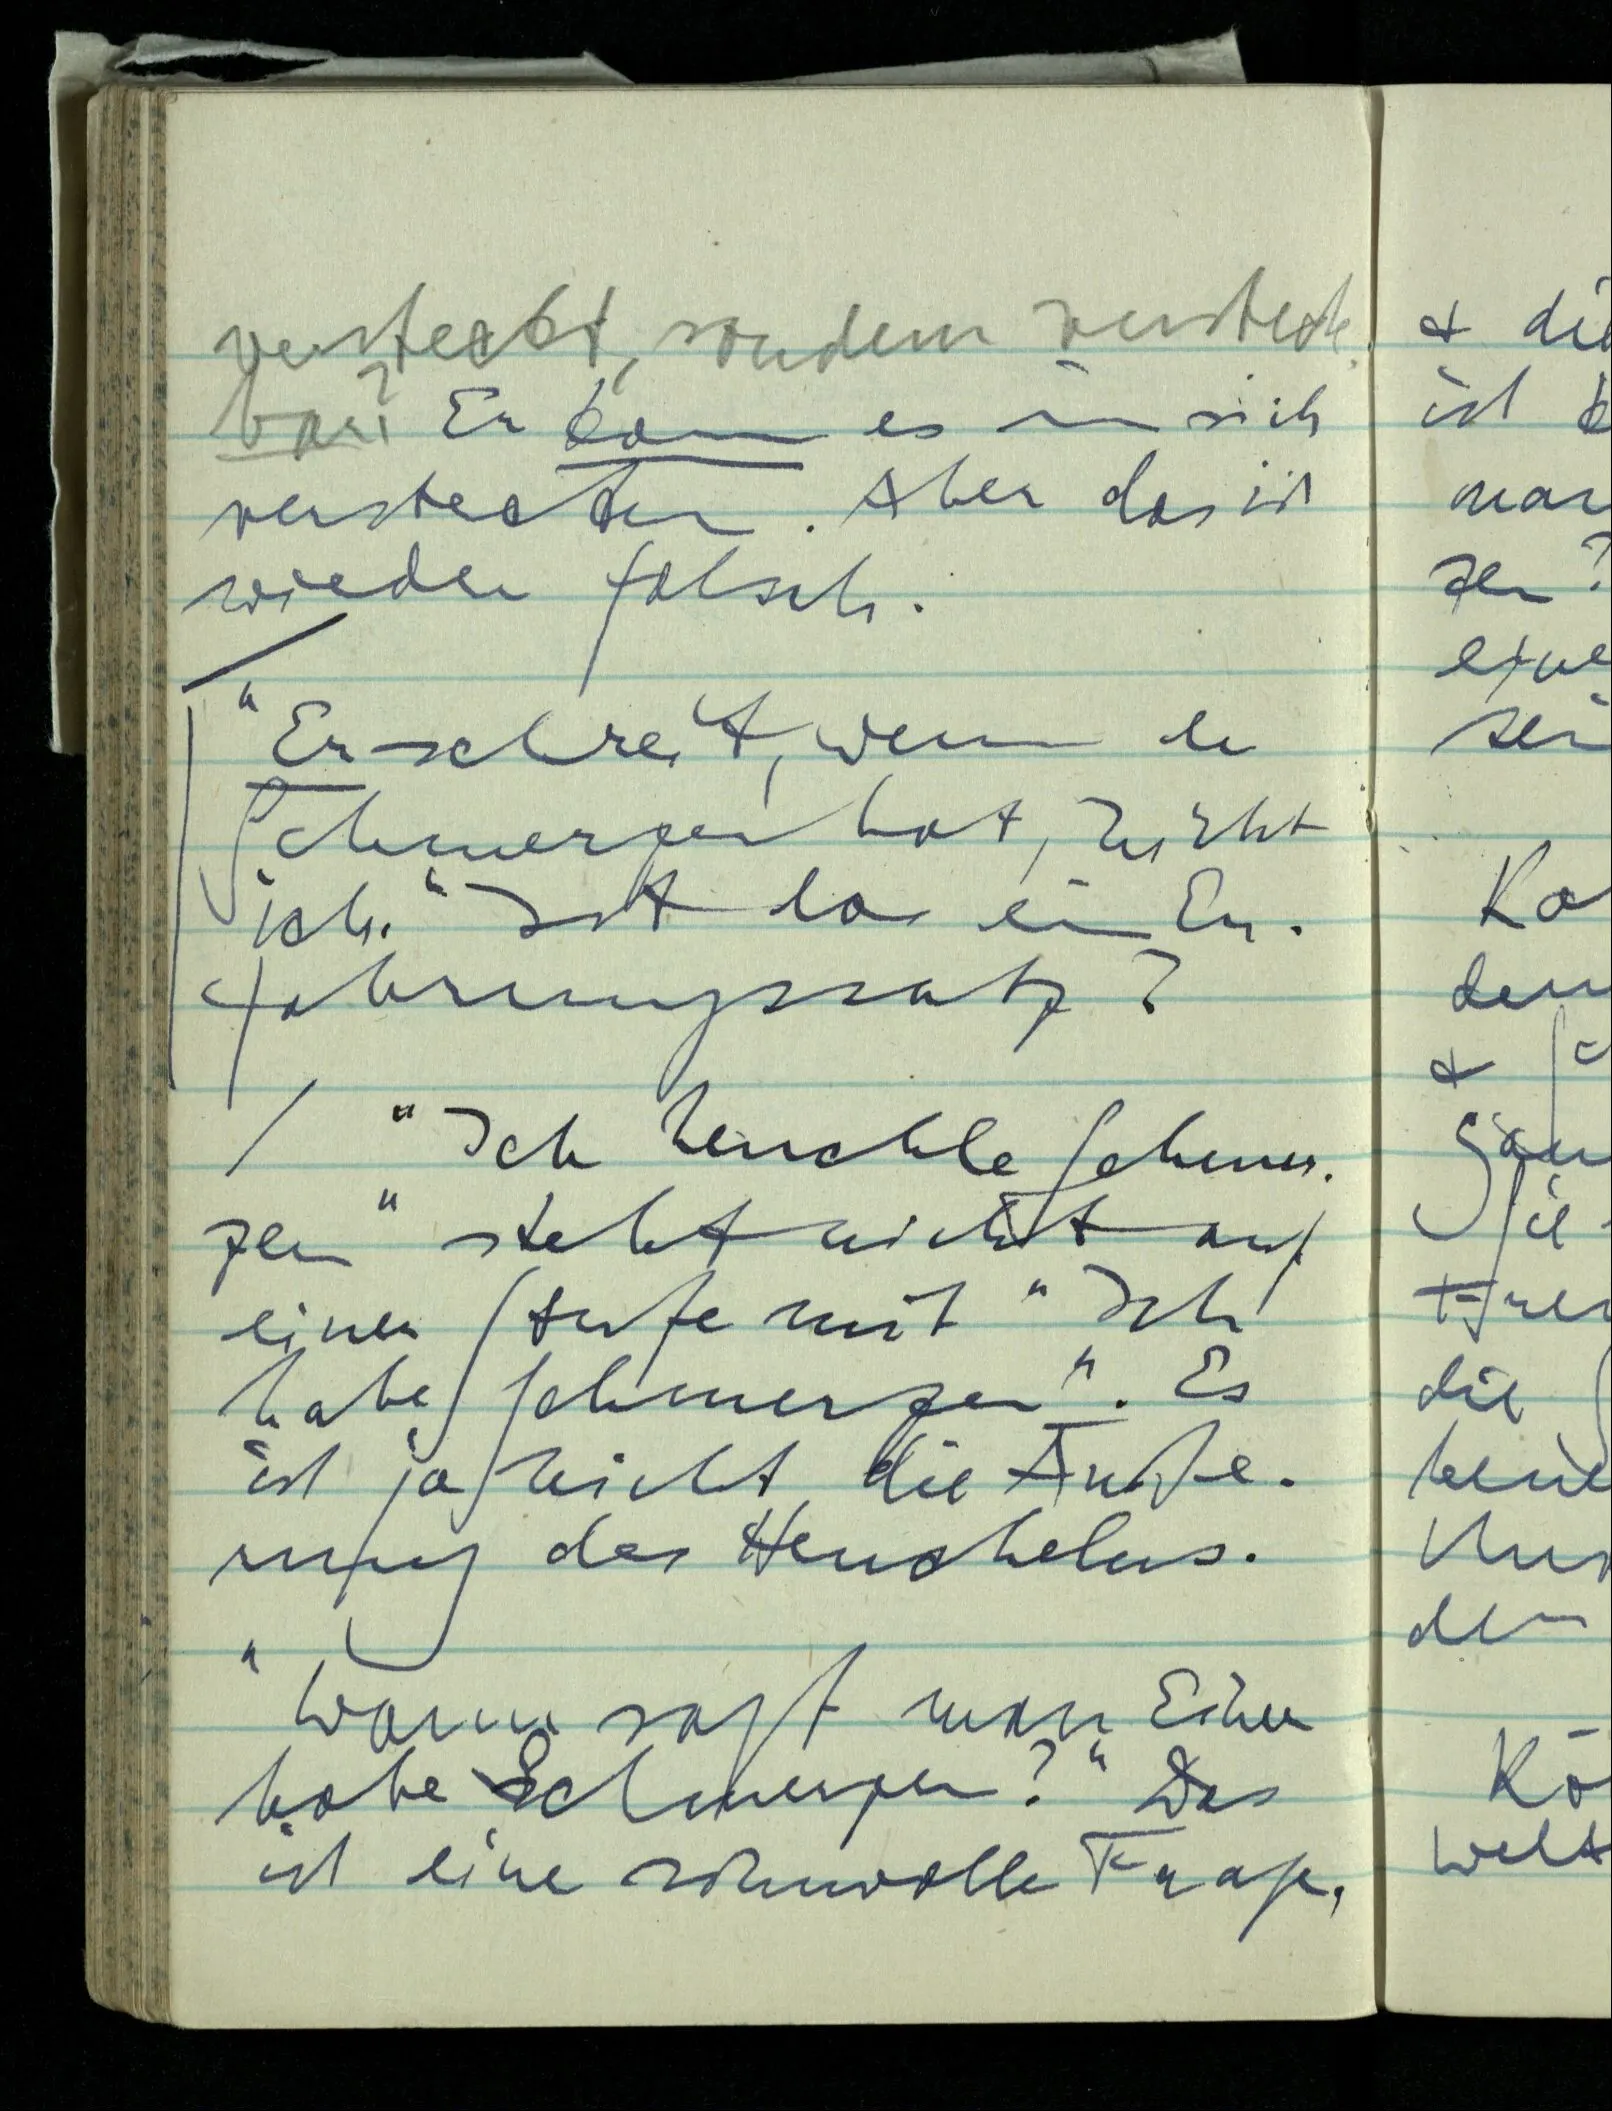 versteckt, sondern versteck-
bar? Er kann es in sich
verstecken. Aber das ist
wieder falsch.
/
"Er schreit, wenn er
Schmerzen hat, nicht
ich." Ist das ein Er-
fahrungssatz?
/ "Ich heuchle Schmer-
zen" steht nicht auf
einer Stufe mit "Ich
habe Schmerzen". Es
ist ja nicht die Äuße-
rung des Heuchelns.
"Wann sagt man Einer
habe Schmerzen?" Das
ist eine sinnvolle Frage,
& die
ist
man
zen?
sein
&
die
den